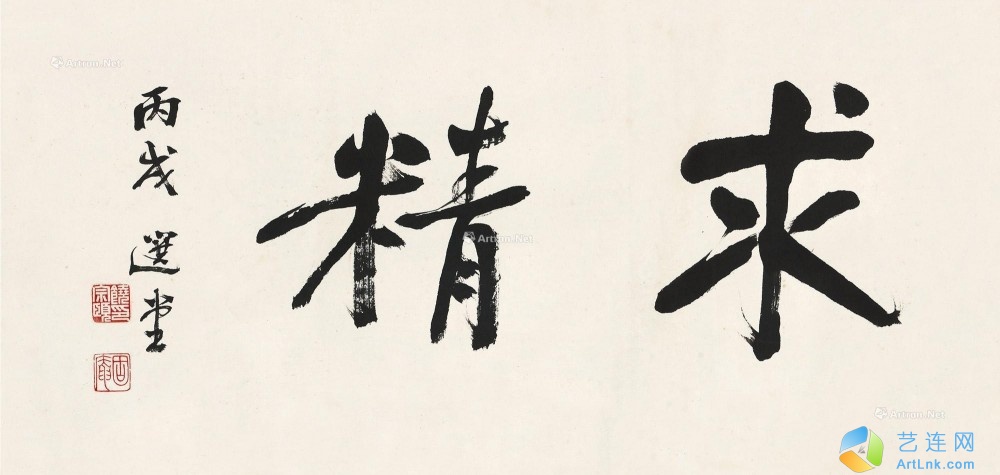 求精
丙戌 選堂
饒宗頤
Artron.Net
Artron.Net
Artron.Net
艺连网
ArtLnk.com